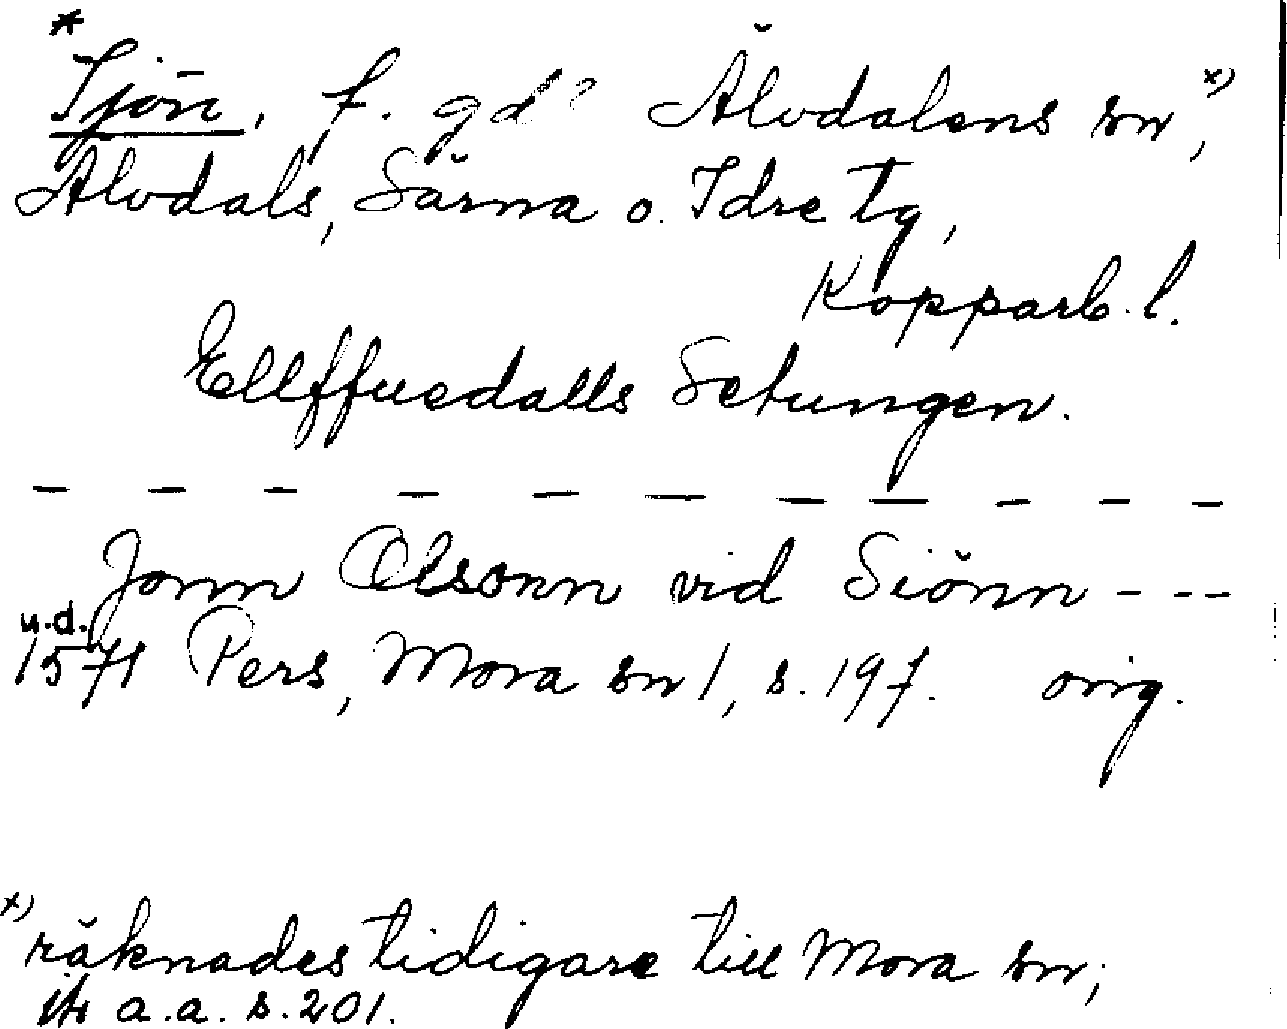 *
Sjön, f. gd? Älvdalens sn x),
Älvdals, Särna o. Idre tg,
Kopparb. l.
Ellffuedalls Setungen.
— — — — — — — — — — —
Jonn Olsonn vid Siönn - - -
u.d.
1571 Pers, Mora sn 1, s. 197. orig.
x) räknades tidigare till Mora sn;
jfr a.a. s. 201.